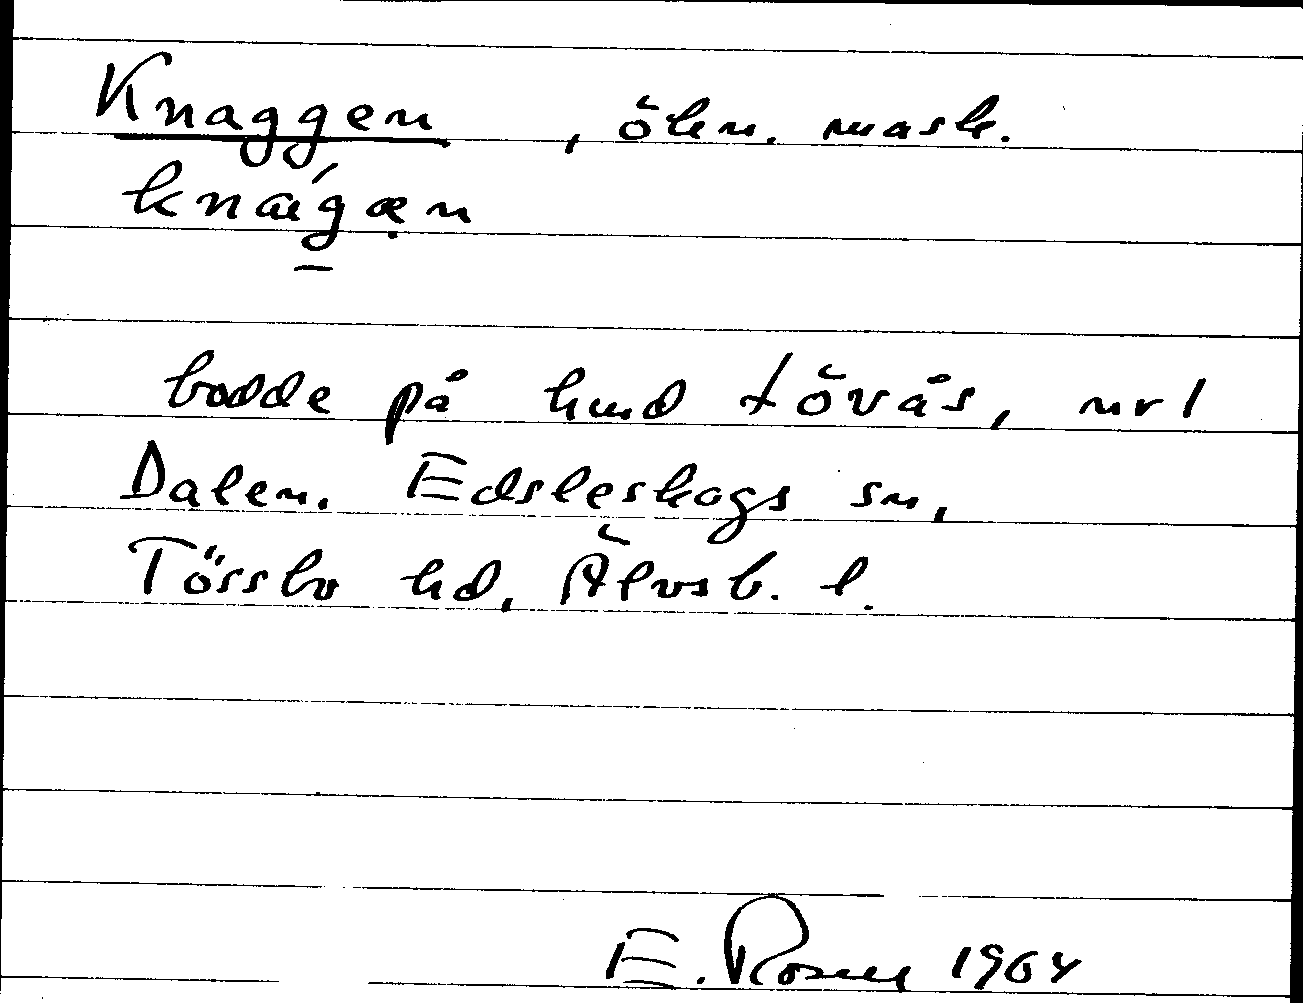 Knaggen, ökn. mask.
knag̱æ̣n
bodde på hmd Lövås, nr 1
Dalen. Edsleskogs sn,
Tössbo hd, Älvsb. l.
E. Rosell 1964